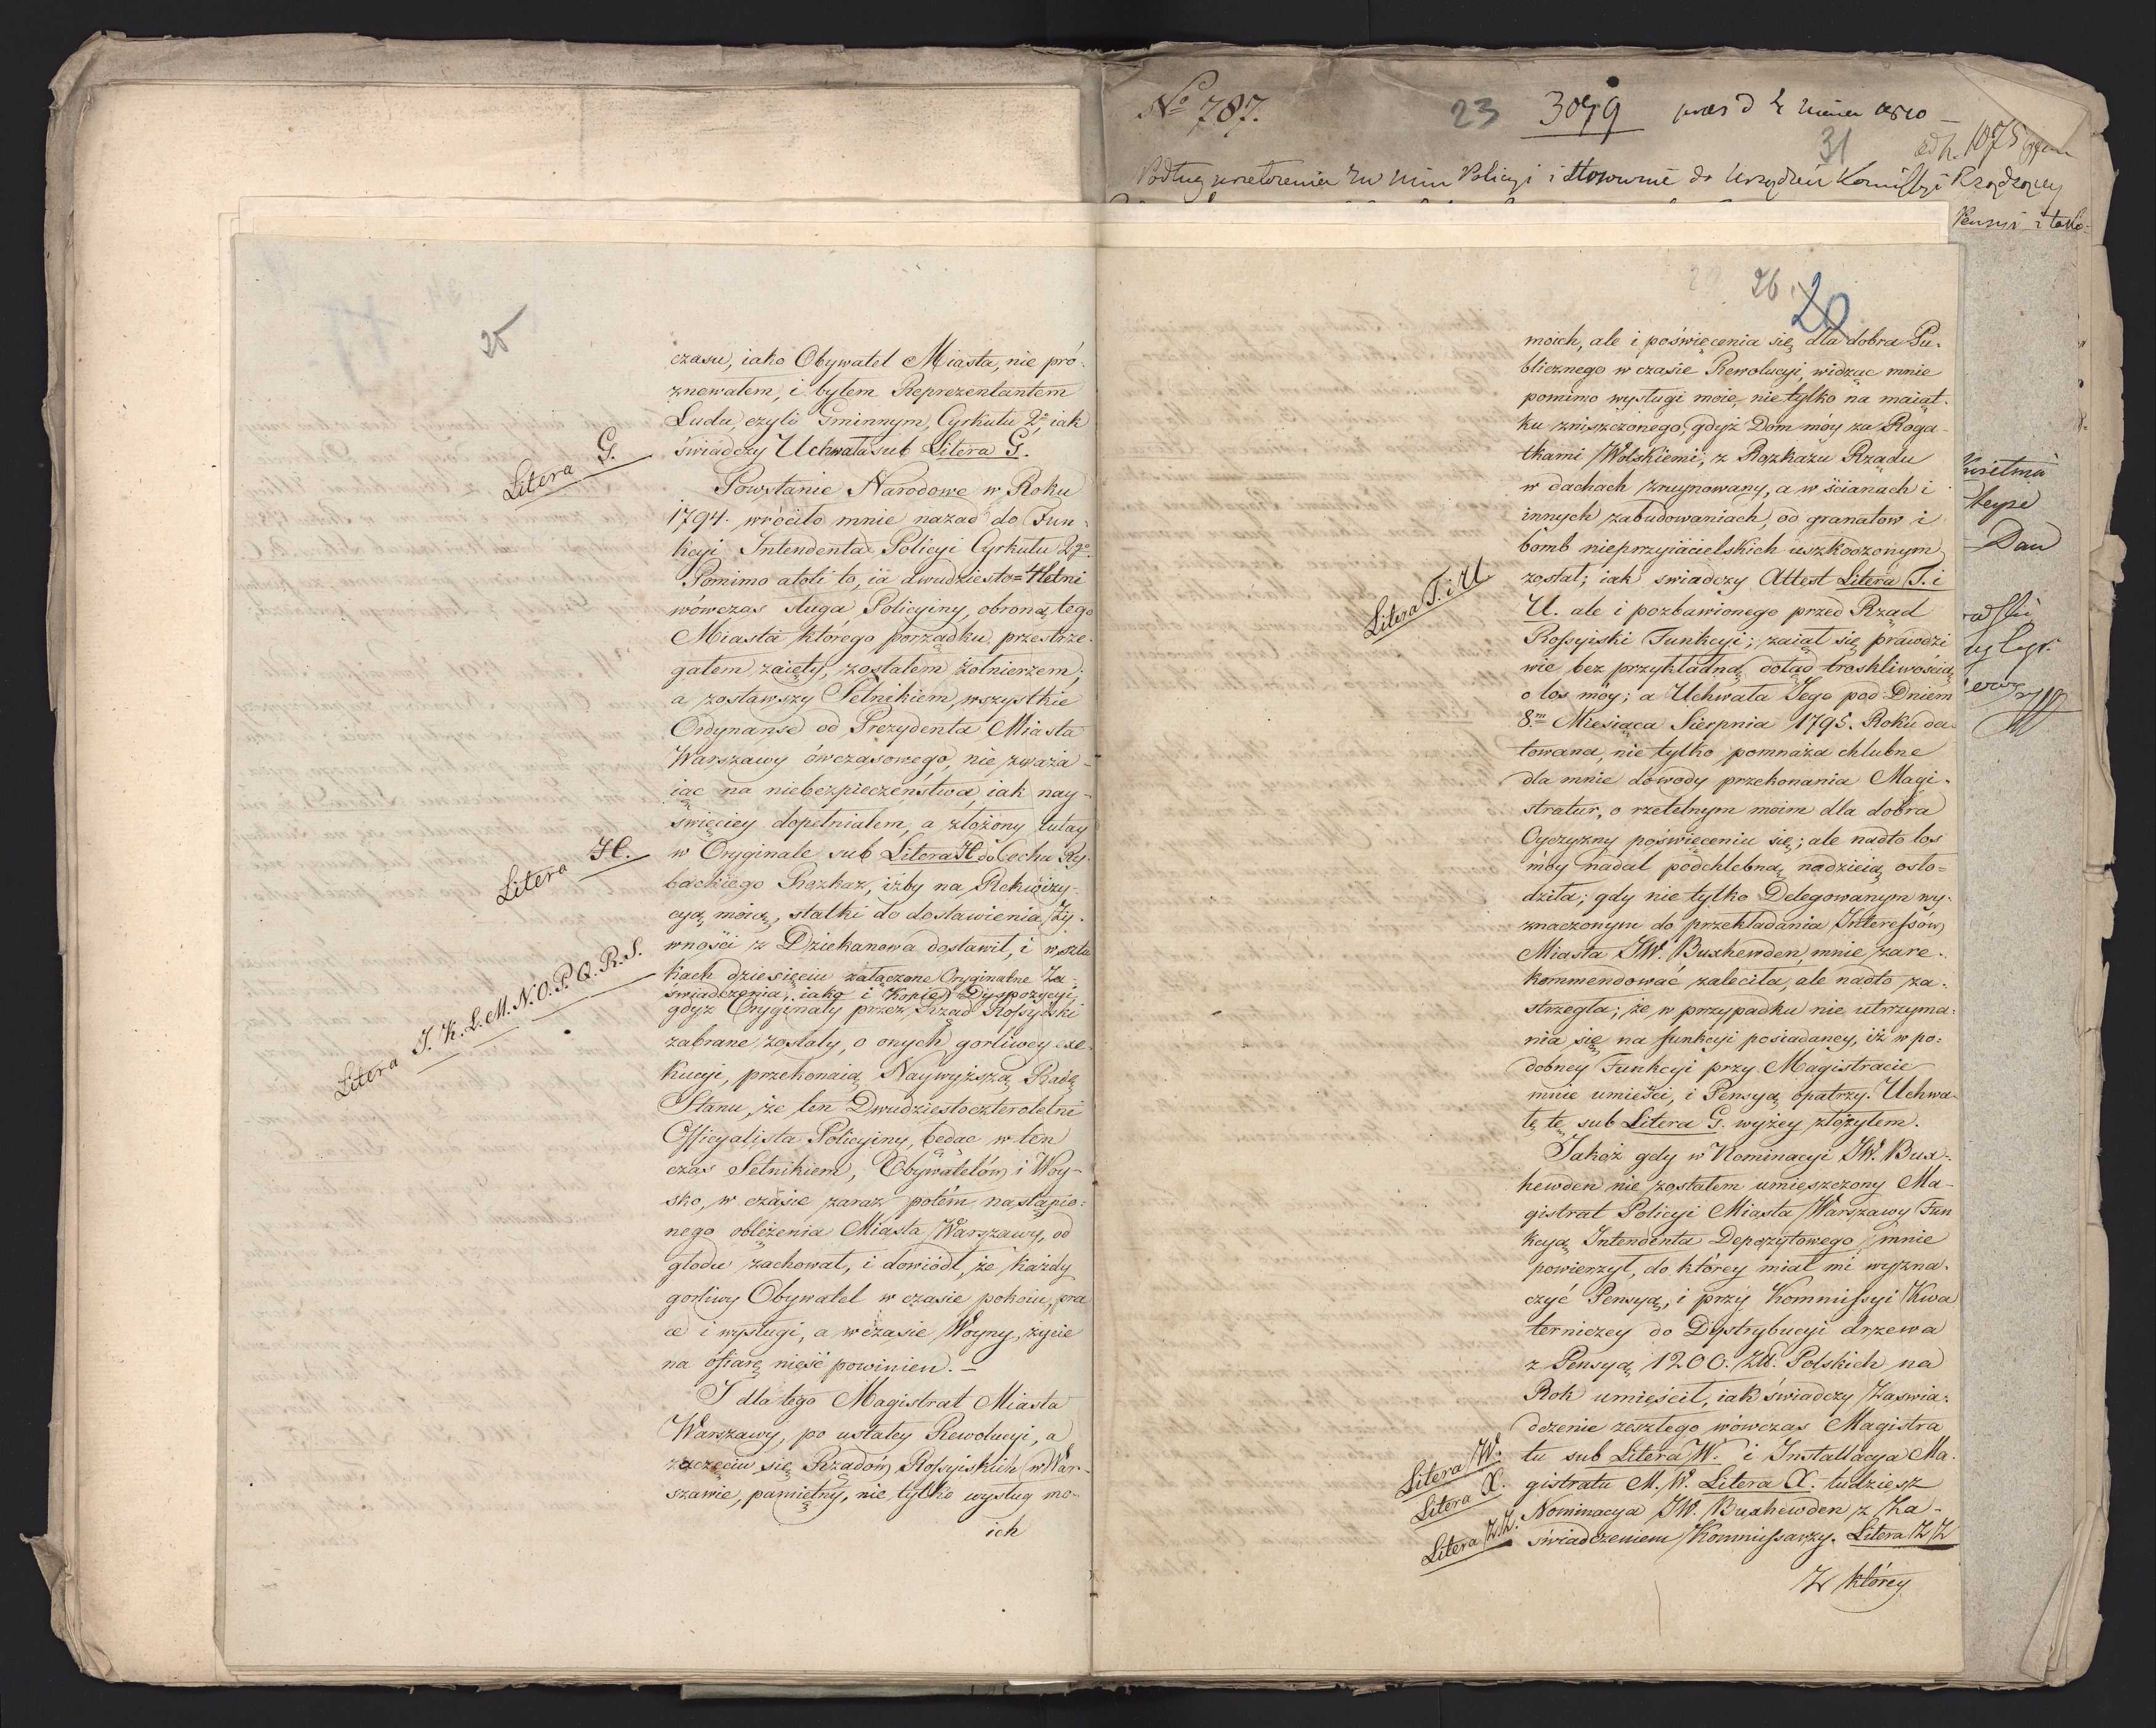 25
czasu, iako Obywatel Miasta, nie pró-
znowałem, i byłem Reprezentantem
Ludu, czyli Gminnym, Cyrkułu 2o, iak
świadczy Uchwała sub Litera G.
Litera G.
Powstanie Narodowe w Roku
1794. wróciło mnie nazad do Fun-
kcyi Intendenta Policyi Cyrkułu 2go.
Pomimo atoli to, iż dwudziesto=4letni
wówczas sługa Policyiny, obroną tego
Miasta którego porządku przestrze-
gałem zaięty, zostałem żołnierzem;
a zostawszy Setnikiem, wszystkie
Ordynanse od Prezydenta Miasta
Warszawy ówczasowego, nie zważa-
iąc na niebezpieczeństwa, iak nay-
święciey dopełniałem, a złożony tutay
w Oryginale sub Litera H do Cechu Ry-
Litera H.
backiego Rozkaz, iżby na Rekwizy-
cyą moią, statki do dostawienia Ży-
wności z Dziekanowa dostawił, i w sztu
kach dziesięciu załączone Oryginalne Za-
Litera I. K. L. M. N. O. P. Q. R. S.
świadczenia, iako i Kopie Dyspozycyi,
gdyż Oryginały przez Rząd Rossyiski
zabrane zostały, o onych gorliwey exe-
kucyi, przekonaią Naywyższą Radę
Stanu, że ten Dwudziestoczteroletni
Officyalista Policyiny, będąc w ten
czas Setnikiem, Obywatelów i Woy-
sko, w czasie zaraz potém nastąpio-
nego oblężenia Miasta Warszawy, od
głodu zachował, i dowiódł, że każdy
gorliwy Obywatel w czasie pokoiu, pra
cę i wysługi, a w czasie Woyny, życie
na ofiarę nieść powinien. —
I dla tego Magistrat Miasta
Warszawy, po ustałey Rewolucyi, a
zaczęciu się Rządów Rossyiskich w War-
szawie, pamiętny, nie tylko wysług mo-
ich
No 787.
23
3079
31
Podług Policyi i stosownie do Urządzeń Kommissyi Rządzącey
26
20
moich, ale i poświęcenia się dla dobra Pu-
blicznego w czasie Rewolucyi, widząc mnie
pomimo wysługi moie, nie tylko na maiąt-
ku zniszczonego, gdyż Dom móy za Roga-
tkami Wolskiemi, z Rozkazu Rządu
w dachach zruynowany, a w ścianach i
innych zabudowaniach, od granatow i
bomb nieprzyiacielskich uszkodzonym
został; iak świadczy Attest Litera T. i
Litera T. i U.
U. ale i pozbawionego przed Rząd
Rossyiski Funkcyi; zaiął się prawdzi
wie bez przykładną dotąd troskliwością
o los móy; a Uchwała Jego pod Dniem
8m Miesiąca Sierpnia 1795. Roku da-
towana, nie tylko pomnaża chlubne
dla mnie dowody przekonania Magi-
stratur, o rzetelnym moim dla dobra
Oyczyzny poświęceniu się; ale nadto los
móy nadal podchlebną nadzieią osło-
dziła; gdy nie tylko Delegowanym wy-
znaczonym do przekładania Interessów
Miasta JW. Buxhewden, mnie zare-
kommendować zaleciła, ale nadto za-
strzegła; że w przypadku nie utrzyma-
nia się na funkcyi posiadaney, iż w po-
dobney Funkcyi przy Magistracie
mnie umieści, i Pensyą opatrzy. Uchwa-
łę tę sub Litera G. wyżey złożyłem.
Jakoż gdy w Nominacyi JW. Bux-
hewden nie zostałem umieszczony Ma-
gistrat Policyi Miasta Warszawy Fun
kcyą Intendenta Depozytowego mnie
powierzył, do którey miał mi wyzna-
czyć Pensyą, i przy Kommissyi Kwa
terniczey do Dystrybucyi drzewa
z Pensyą 1200. Złł. Polskich na
Rok umieścił, iak świadczy Zaswia-
dczenie zeszłego wówczas Magistra
tu sub Litera W. i Installacya Ma-
Litera W.
gistratu M. W. Litera X. tudzież
Litera X.
Nominacya JW. Buxhewden z Za-
świadczeniem Kommissarzy. Litera ZZ
Litera ZZ.
Z którey